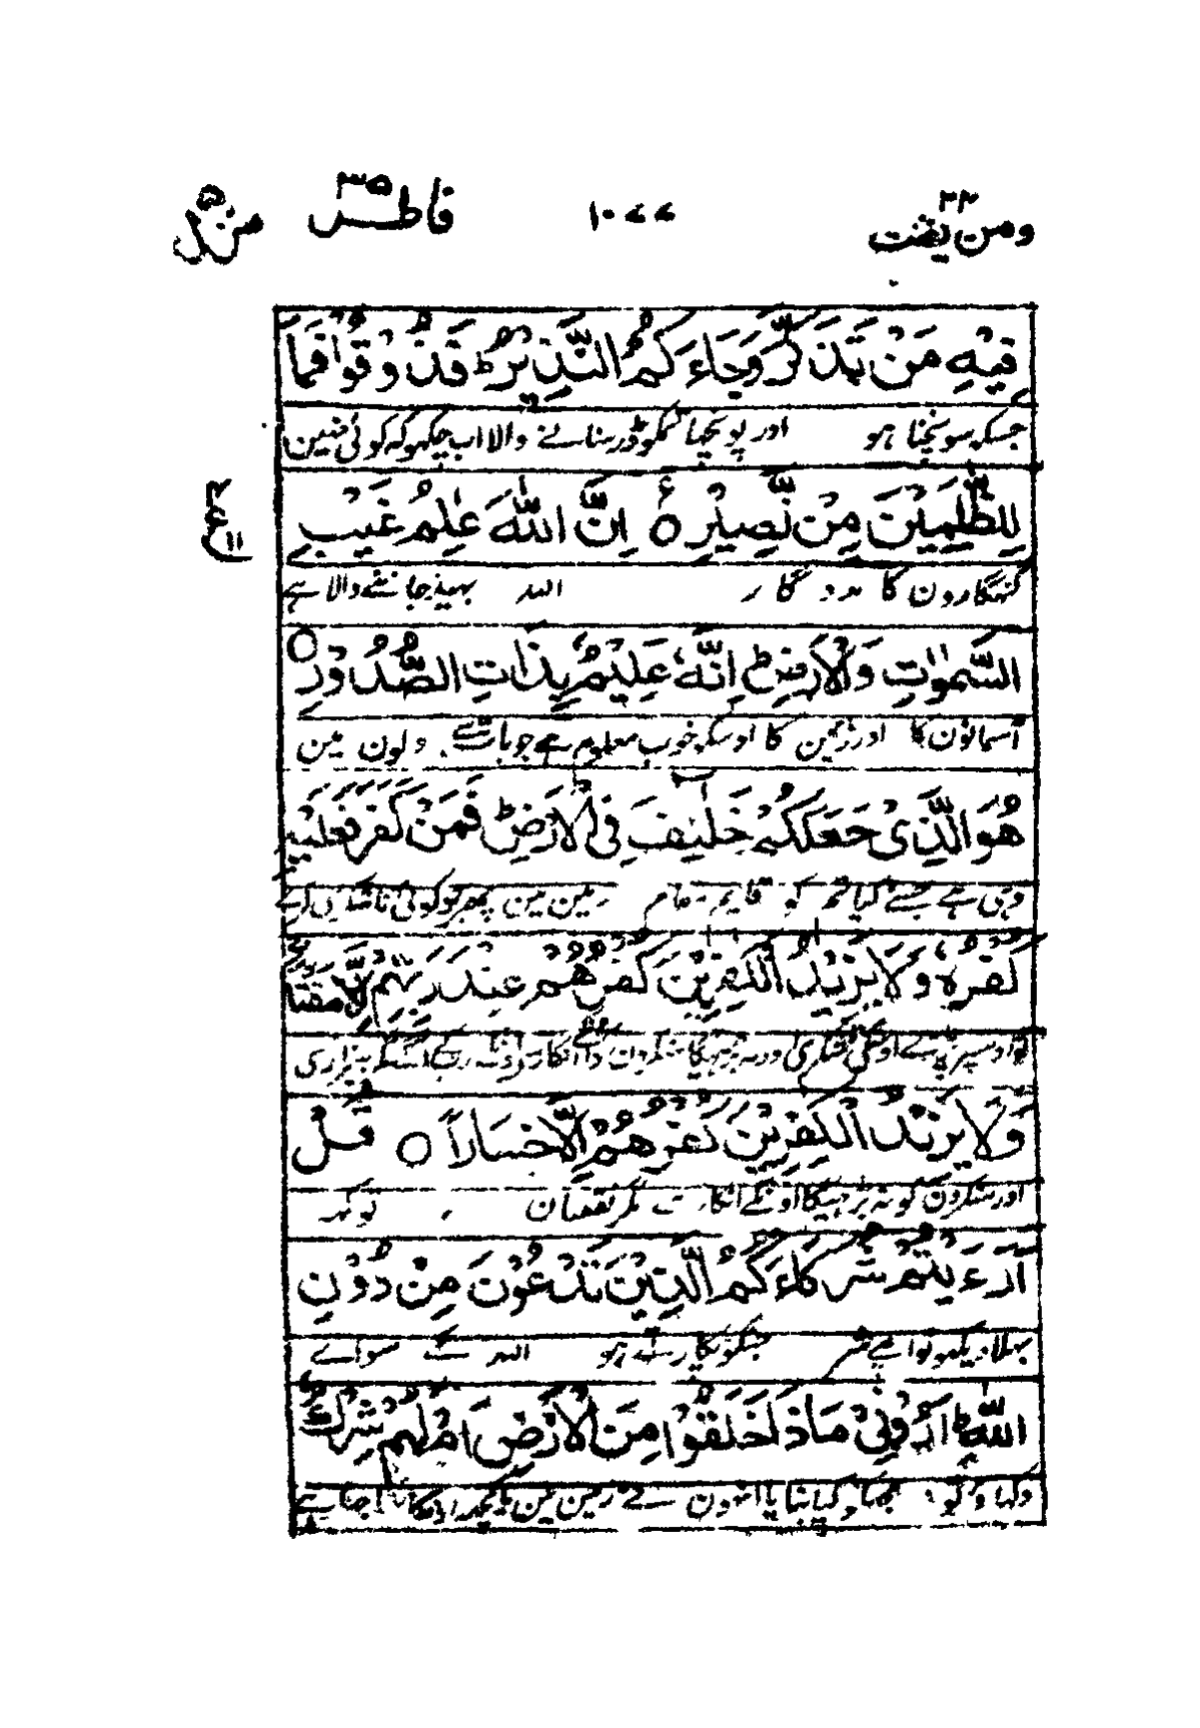 ومن یقنت ۲۲ ۱۰۷۷ فاطر ۳۵ منزل ۵
فِيْهِ مَنْ تَذَكَّرَ وَجَاءَكُمُ النَّذِيْرُ ط فَذُوْقُوْا فَمَا
جسکو سونچنا ہو اور پونچہا تمکو ڈر سنانے والا اب چکہو کہ کوئی نہین
لِلظّٰلِمِيْنَ مِنْ نَّصِيْرٍ ۝ اِنَّ اللّٰهَ عٰلِمُ غَيْبِ
ع ۴ ۱۱
گنہگارون کا مددگار اللہ بہید جاننے والا ہے
السَّمٰوٰتِ وَالْاَرْضِ ط اِنَّهٗ عَلِيْمٌۢ بِذَاتِ الصُّدُوْرِ ۝
آسمانون کا اور زمین کا اوسکو خوب معلوم ہے جو بات ہے دلون مین
هُوَ الَّذِىْ جَعَلَكُمْ خَلٰٓئِفَ فِى الْاَرْضِ ط فَمَنْ كَفَرَ فَعَلَيْهِ
وہی ہے جسنے کیا تمکو قایم مقام زمین مین پھر جو کوئی ناشکری کرے
كُفْرُهٗ وَلَا يَزِيْدُ الْكٰفِرِيْنَ كُفْرُهُمْ عِنْدَ رَبِّهِمْ اِلَّا مَقْتًا
تو اوسپر پڑے اوسکی ناشکری اور نہ بڑہیگا منکرون کو انکار سے اونکے رب کے آگے مگر بیزاری
وَلَا يَزِيْدُ الْكٰفِرِيْنَ كُفْرُهُمْ اِلَّا خَسَارًا ۝ قُلْ
اور منکرون کو نہ بڑہیگا اونکے انکار سے مگر نقصان تو کہہ
اَرَءَيْتُمْ شُرَكَاءَكُمُ الَّذِيْنَ تَدْعُوْنَ مِنْ دُوْنِ
بہلا دیکہو تو اپنے شریک جنکو پکارتے ہو اللہ کے سواے
اللّٰهِ ط اَرُوْنِىْ مَاذَا خَلَقُوْا مِنَ الْاَرْضِ اَمْ لَهُمْ شِرْكٌ
دکہاو تو مجہکو کیا بنایا انہون نے زمین مین یا کچھ اونکا ساجہا ہے